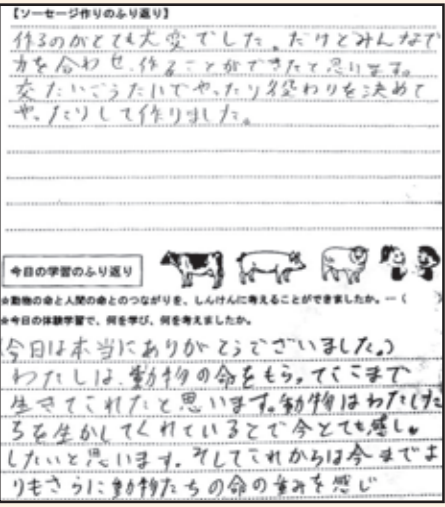 【ソーセージ作りのふり返り】
作るのがとても大変でした。だけどみんなで
力を合わせ、作ることができたと思います。
交たいごうたいでやったり役わりを決めて
やったりして作りました。
今日の学習のふり返り
☆動物の命と人間の命とのつながりを、しんけんに考えることができましたか。―(
☆今日の体験学習で、何を学び、何を考えましたか。
(今日は本当にありがとうございました。)
わたしは、動物の命をもらってここまで
生きてこれたと思います。動物はわたした
ちを生かしてくれているとで今とても感し
したいと思います。そしてこれからは今までよ
りもさらに動物たちの命の重みを感じ